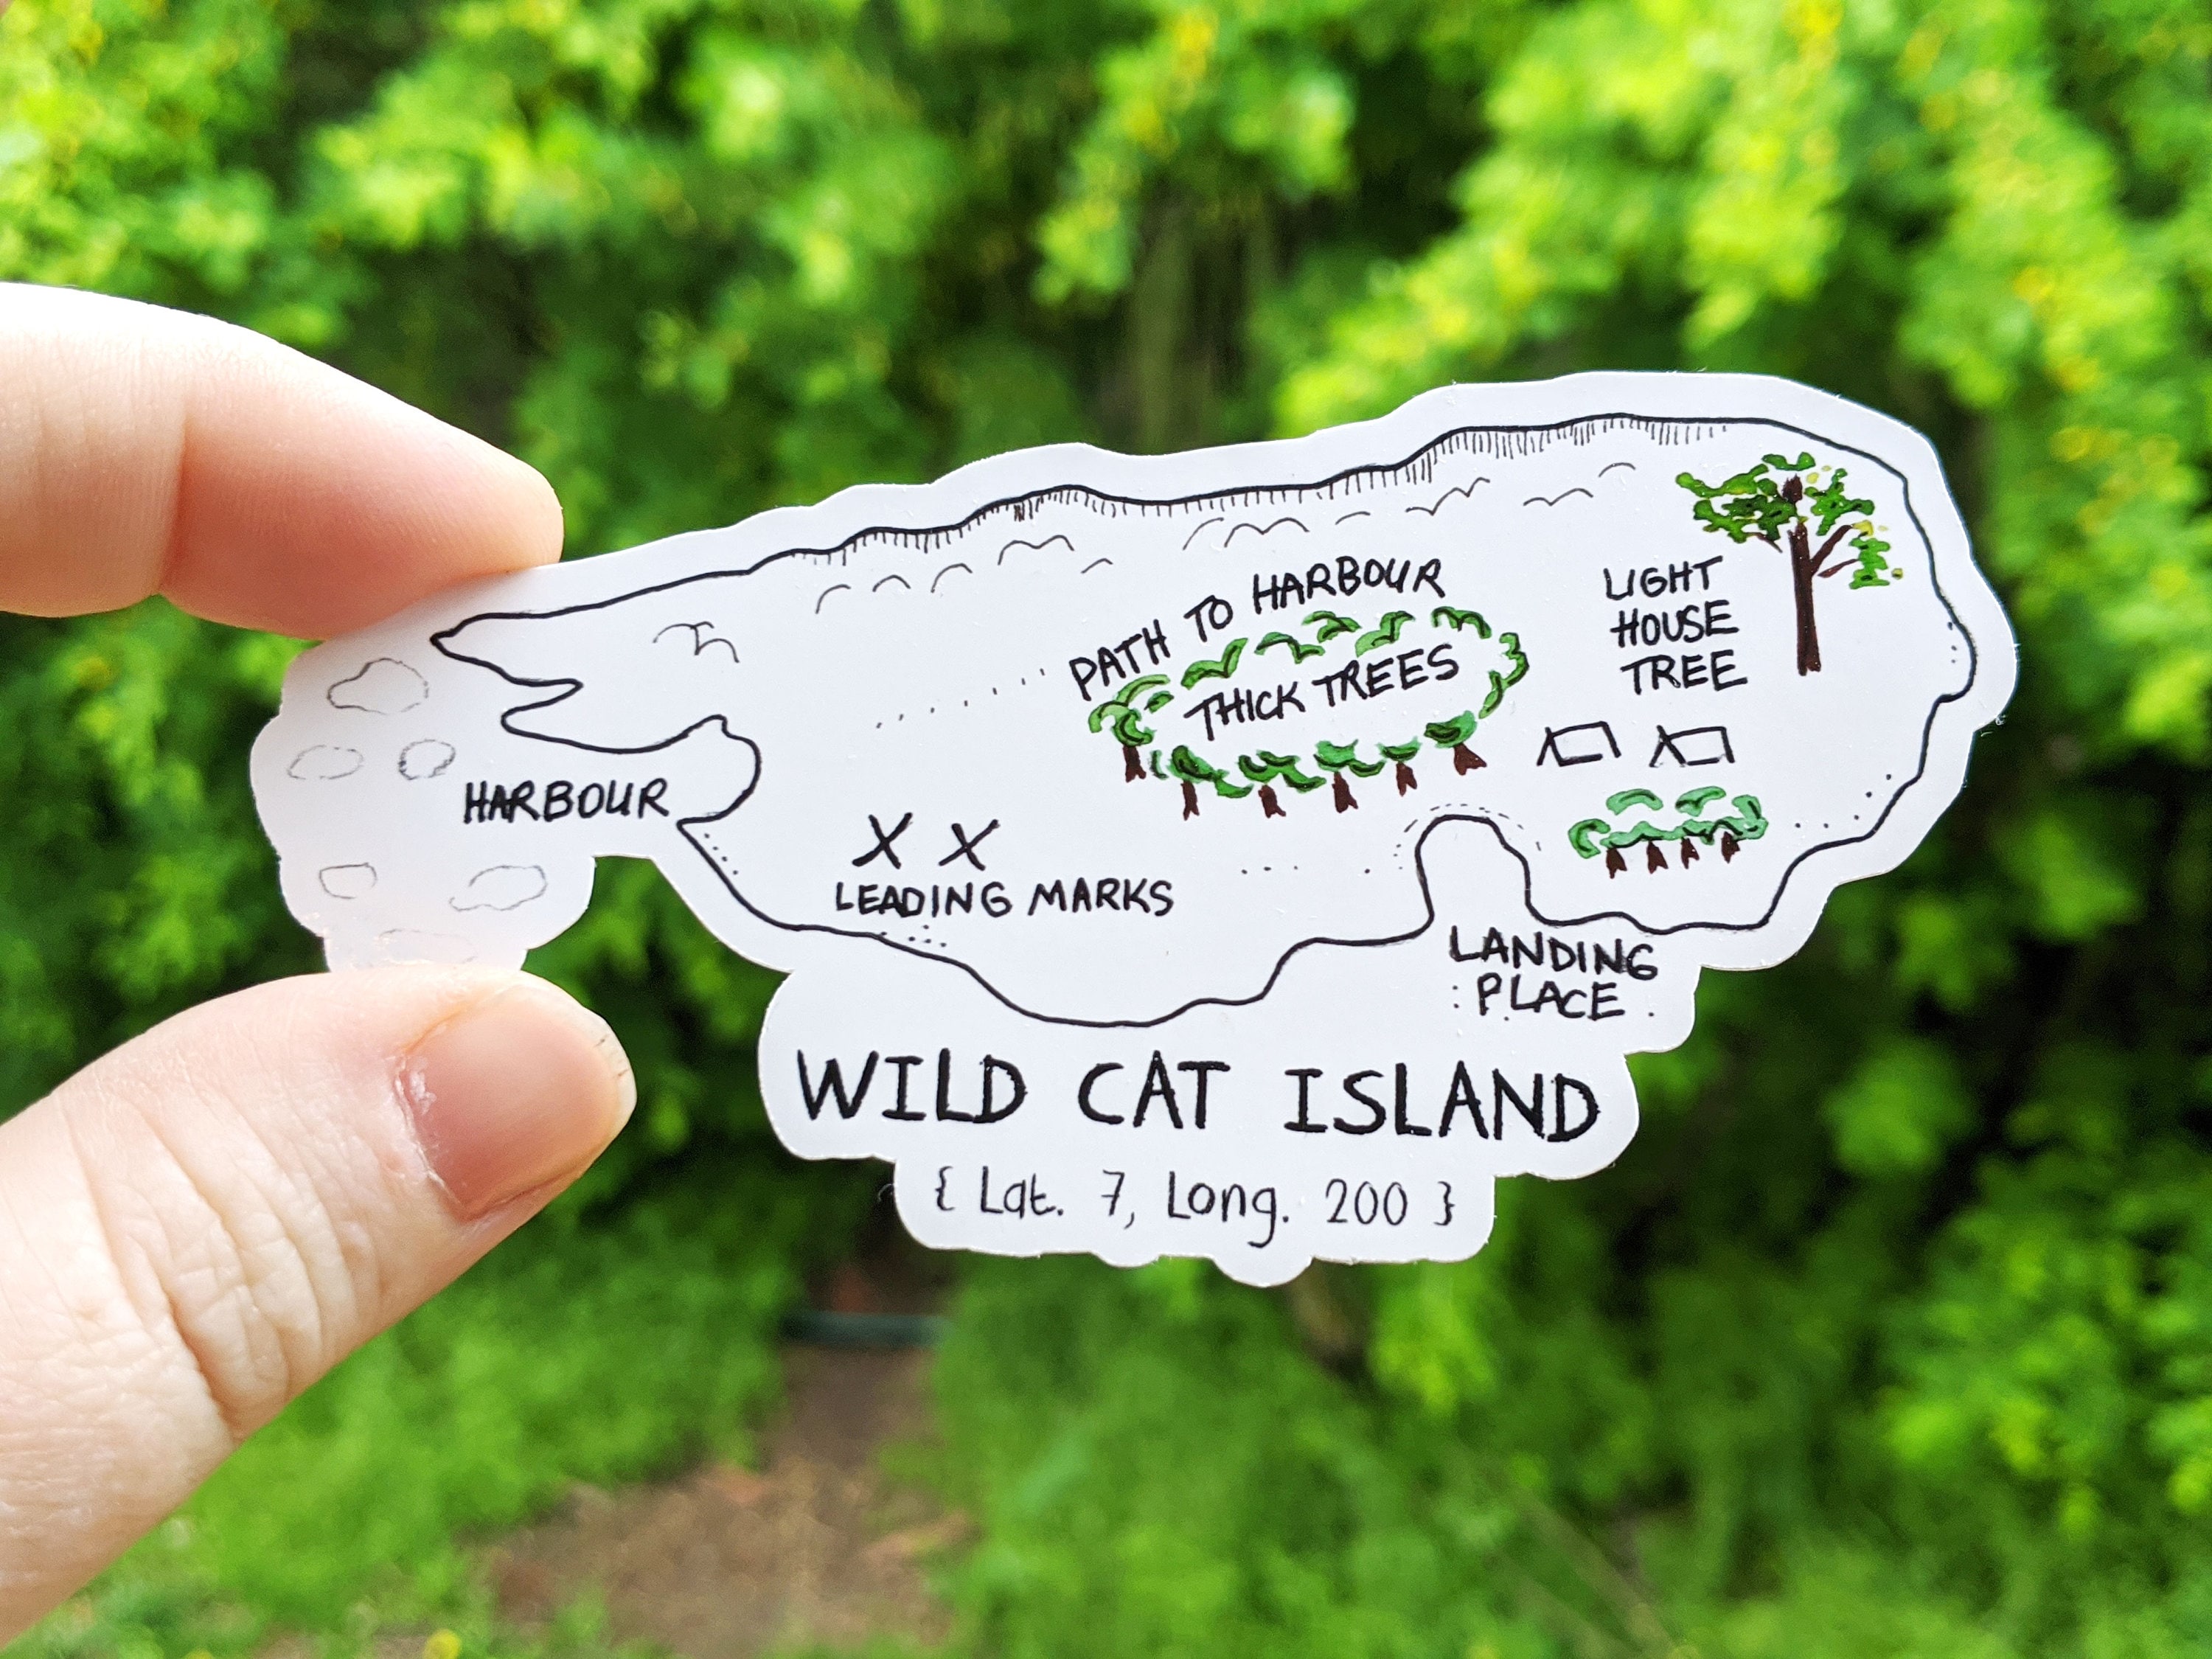 PATH TO HARBOUR
THICK TREES
LIGHT
HOUSE
TREE
HARBOUR
X X
LEADING MARKS
LANDING
PLACE
WILD CAT ISLAND
{ Lat. 7, Long. 200 }